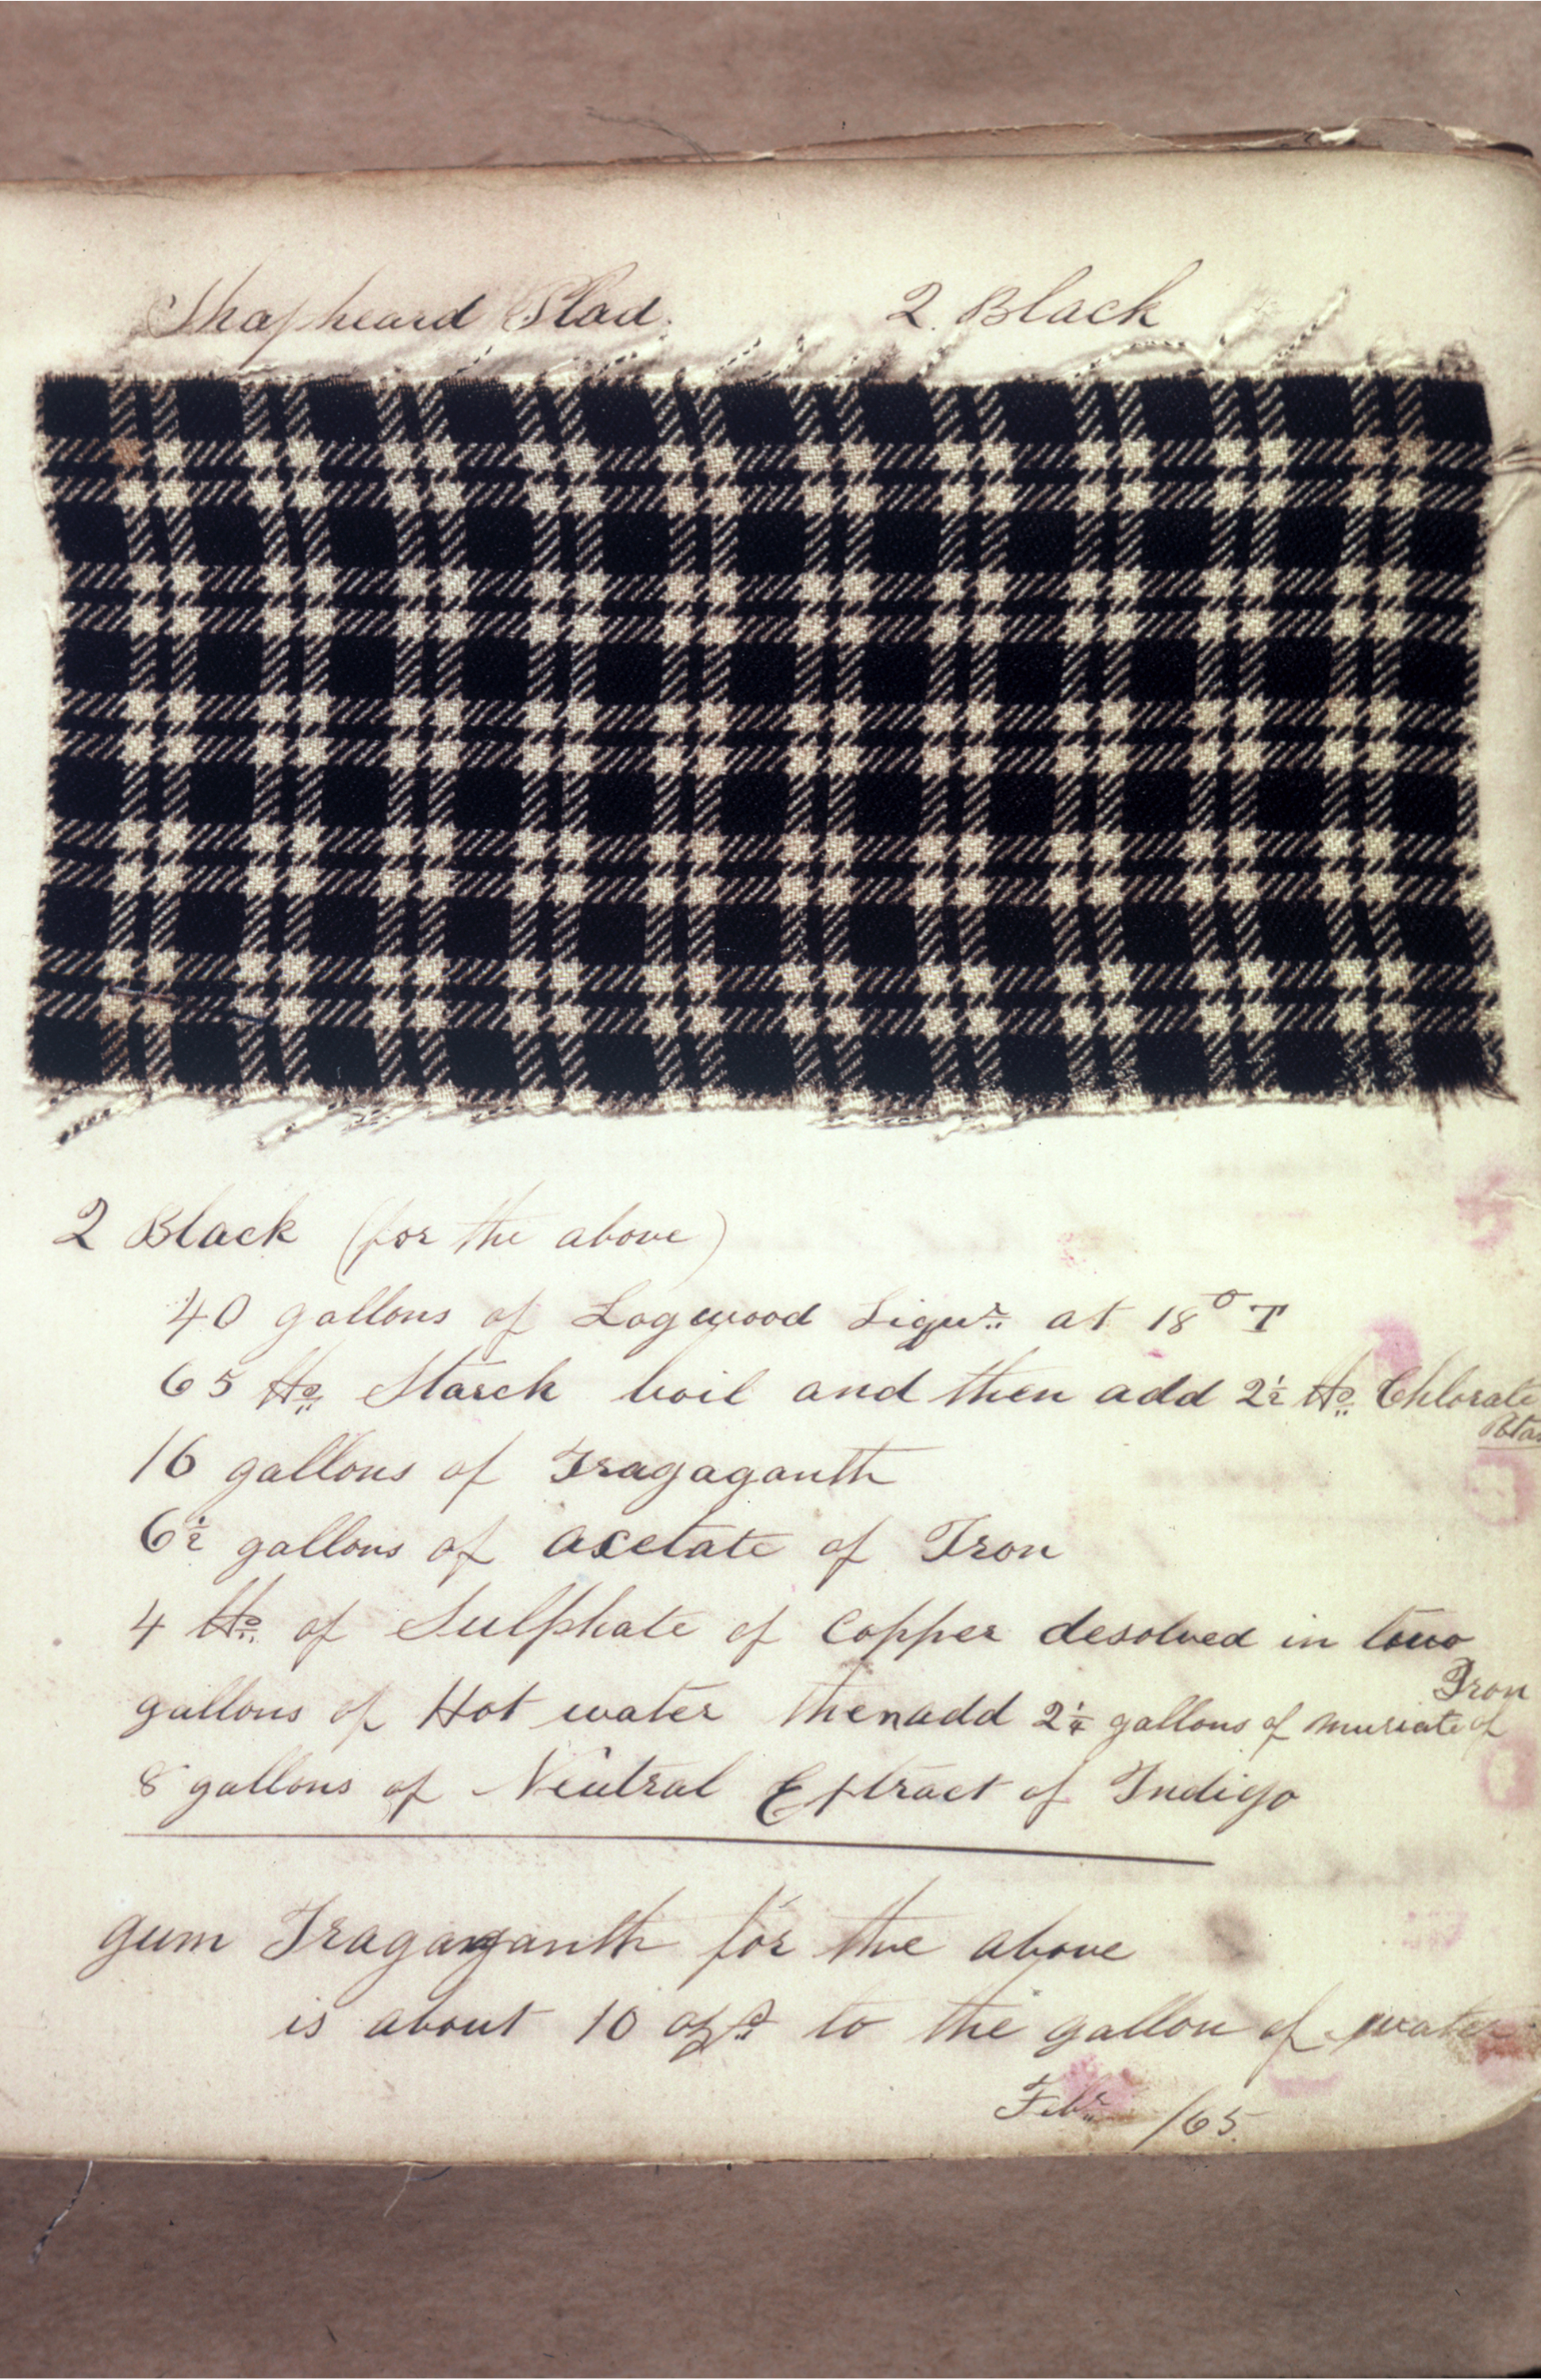 Shapheard Plad. 2. Black
2 Black (for the above)
40 gallons of Logwood Liqur. at 18° T
65 lbs. Starch boil and then add 2½ lbs. Chlorate
Potas
16 gallons of Tragaganth
6½ gallons of acetate of Iron
4 lbs. of Sulphate of Copper desolved in towo
gallons of Hot water then add 2¼ gallons of muriate of Iron
8 gallons of Neutral Extract of Indigo
gum Tragaganth for the above
is about 10 ozs to the gallon of water
Febr. /65.